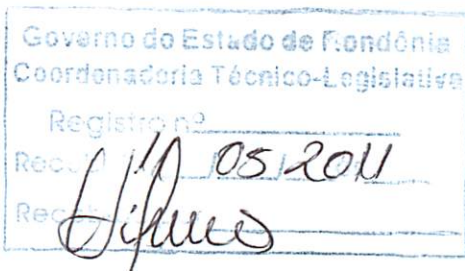 Governo do Estado de Rondônia
Coordenadoria Técnico-Legislativa
Registro nº
Rec 11 05 2011
Rec